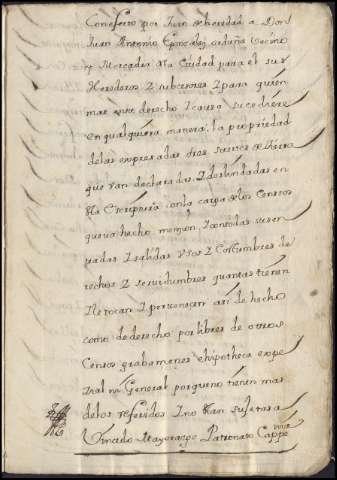 Con efecto por Juro de heredad a Don
Juan Antonio Gonzalez Vecino
y Mercader Ciudad para el sus
Herederos I subcesores I para quien
mas su derecho I causa sucediere
en qualquiera manera la propiedad
delas expresadas suertes de tierra
que van declaradas I deslindadas en
esta Escriptura con la carga delos Censos
que va hecho mencion I contodas sus en
tradas I salidas Vsos I Costumbres de
rechos I servidumbres quantas tienen
Ile tocan I pertenecen asi de hecho
como de derecho por libres de otros
Censos grabamenes e hipotheca expe
zial ni General porque no tienen mas
delos referidos I no stan sujetos a
Vinculo Mayorazgo Patronato Cappnia